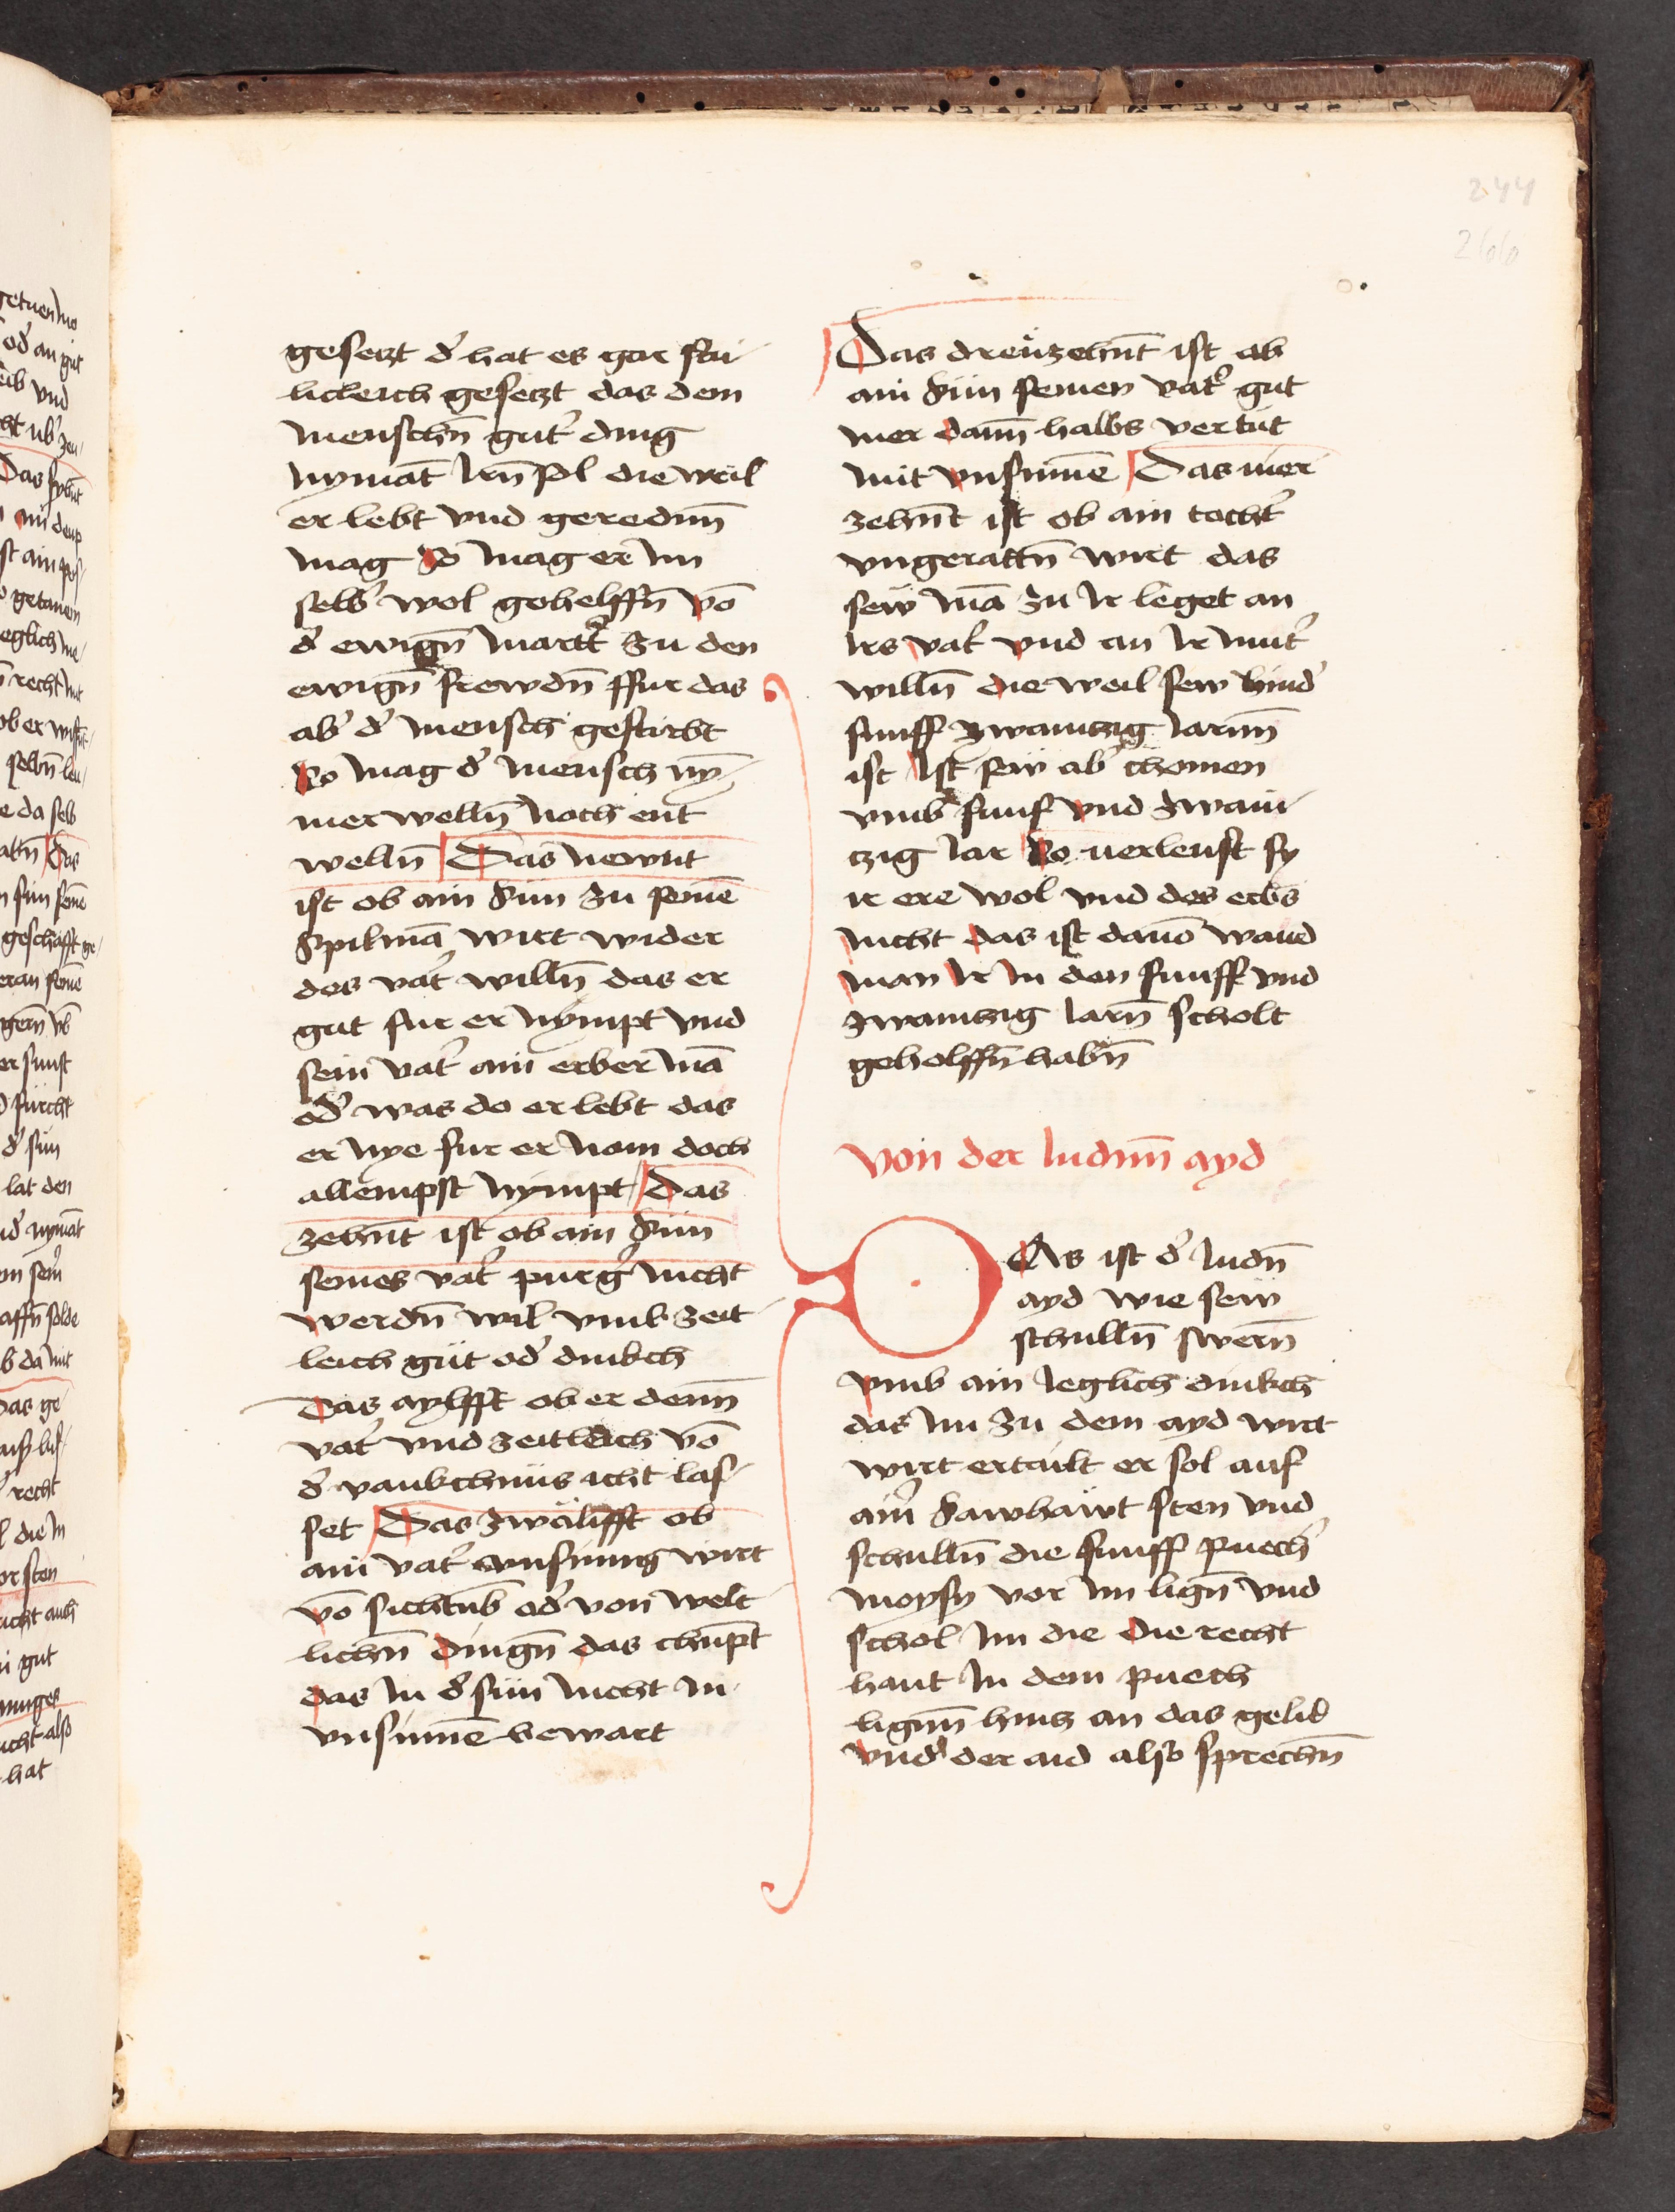 244
266
gesetzt d' hat es gar frü
lichleich gesetzt das dem
menschn̄ gut' ding
nymāt irn̄ sol die weil
er lebt vnd geredenn̄
mag So mag er im
selb' wol gehelffn̄ vō
d' ewign̄ martt' zu den
ewign̄ frewdn̄ ffur das
ab' d' mensch gestirbt
So mag d' mensch ny¬
mer welln̄ noch ent
welln̄ Das newnt
ist ob ain Sun zu seinē
Spilmā wirt wider
des vat' willn̄ das er
gut fur er nympt vnd
sein vat' ain erber mā
od' was do er lebt das
er nye fur er nom doch
allempst nympt Das
zehn̄t ist ob ain Sun
seines vat' purg' nicht
werdn̄ wil vmb zeit
leich gut od' dinkch
Das aylfft ob er denn̄
vat' vnd zeitleich vō
d' vankchnüs icht las¬
set Das zwälifft ob
ain vat' vnsinnig wirt
vō sichtūb od' von welt
lichn̄ dingn̄ das chūpt
das in d' sün nicht in
vnsinnē bewart
Das dreüzehn̄t ist ab
ain Sün seinen vat' gut
mer dann̄ halbs vertüt
mit vnsinnē Das vier
zehn̄t ist ob ain tocht'
vngerattn̄ wirt das
sew mā zu ir leget an
irs vat' vnd an ir mut'
willn̄ die weil sew hind'
funff zwaintzig iarnn̄
ist Ist sew ab' chomen
vmb funf vnd zwain¬
tzig iar So verleust sy
ir ere wol vnd des erbs
nicht das ist dauō wand
man ir in den funff vnd
zwaintzig iarn̄ scholt
geholffn̄ habn̄
Von der iudnn̄ ayd
DAs ist d' iudn̄
ayd wie sew
schulln̄ swern̄
vmb ain ieglich dinkch
das im zu dem ayd wirt
wirt ertailt er sol auf
ain' Sawhäwt sten vnd
schulln̄ die funff puech'
moysy vor im lign̄ vnd
schol im die die recht
hant in dem puech
lignn̄ hintz an das gelid
vnd der aid also sprechn̄